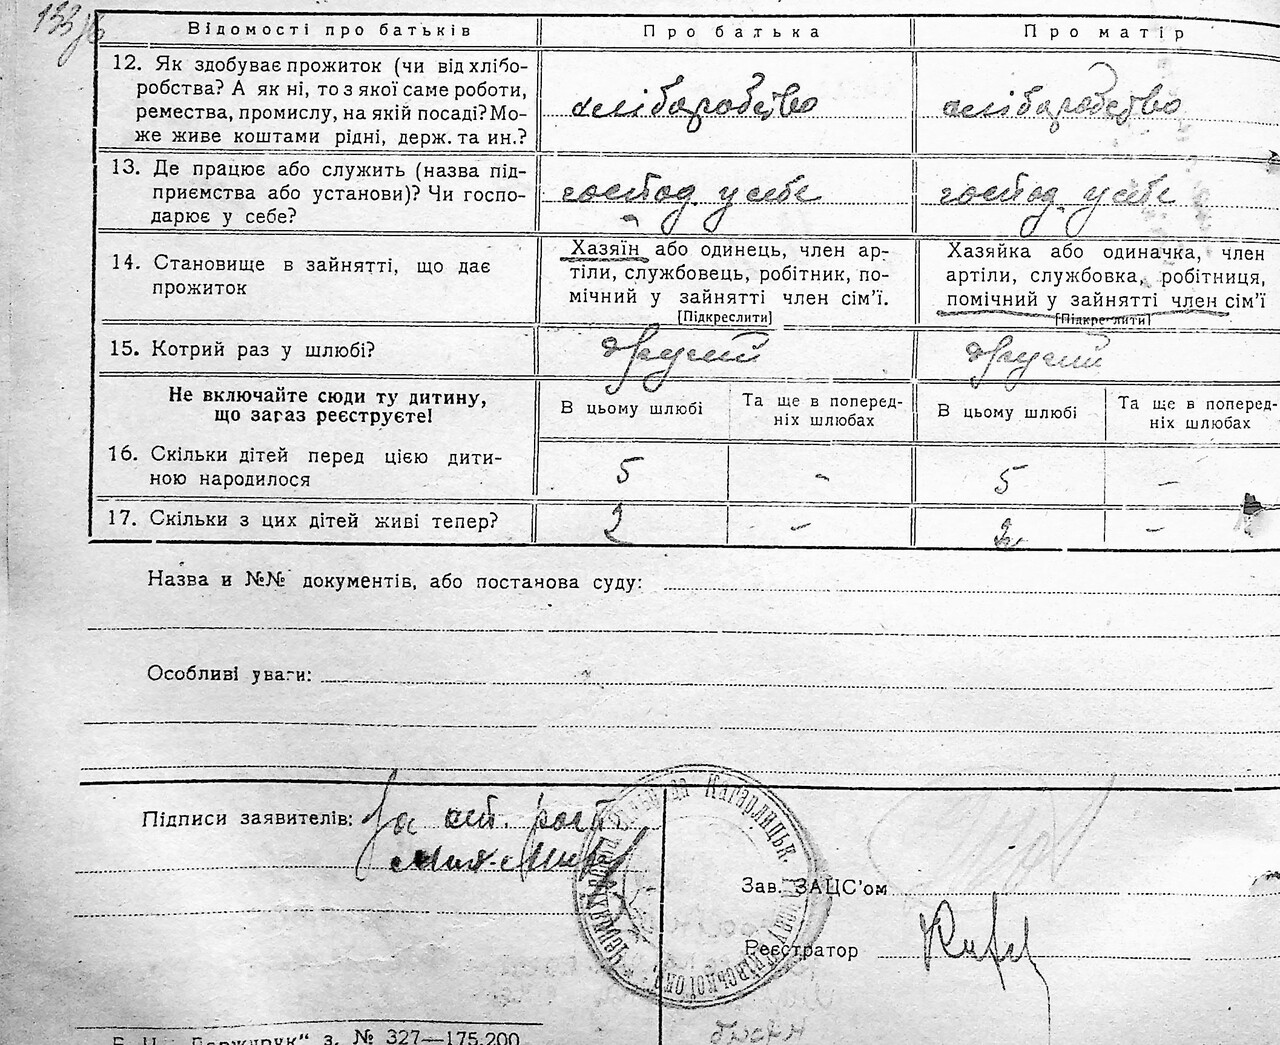 133
Відомості про батьків
Про батька
Про матір
12. Як здобуває прожиток (чи від хлібо-
робства? А як ні, то з якої саме роботи,
ремества, промислу, на якій посаді? Мо-
же живе коштами рідні, держ. та ин.?
хліборобство
хліборобство
13. Де працює або служить (назва під-
приємства або установи)? Чи госпо-
дарює у себе?
господ. у себе
господ. у себе
14. Становище в зайнятті, що дає
прожиток
Хазяїн або одинець, член ар-
тіли, службовець, робітник, по-
мічний у зайнятті член сім’ї.
[Підкреслити]
Хазяйка або одиначка, член
артіли, службовка, робітниця,
помічний у зайнятті член сім’ї
[Підкреслити]
15. Котрий раз у шлюбі?
другий
другий
Не включайте сюди ту дитину,
що загаз реєструєте!
В цьому шлюбі
Та ще в поперед-
ніх шлюбах
В цьому шлюбі
Та ще в поперед-
ніх шлюбах
16. Скільки дітей перед цією дити-
ною народилося
5
-
5
-
17. Скільки з цих дітей живі тепер?
2
-
2
-
Назва и №№ документів, або постанова суду:
Особливі уваги:
Підписи заявителів: За
Кагарлицьк.
Зав. ЗАЦС’ом
Реєстратор
з. № 327—175.200